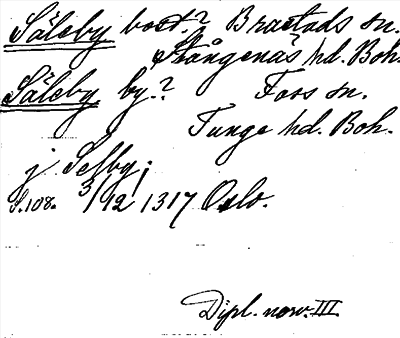 Säleby bost.? Brastads sn.
Stångenäs hd. Boh.
Säleby by.? Foss sn.
Tunge hd. Boh.
j Selby;
S.108. 3/12 1317 Oslo.
Dipl. norv. III